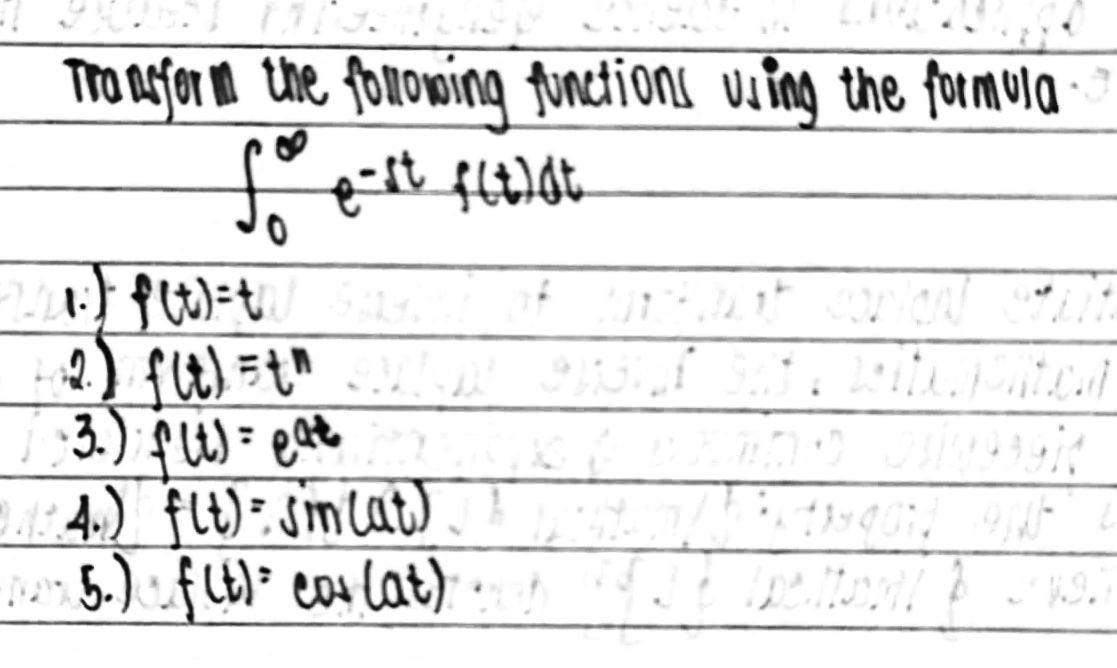 Transform the following functions using the formula
∫₀^∞ e^-st f(t)dt
1.) f(t)=t
2.) f(t)=tⁿ
3.) f(t)=e^at
4.) f(t)=sin(at)
5.) f(t)=cos(at)